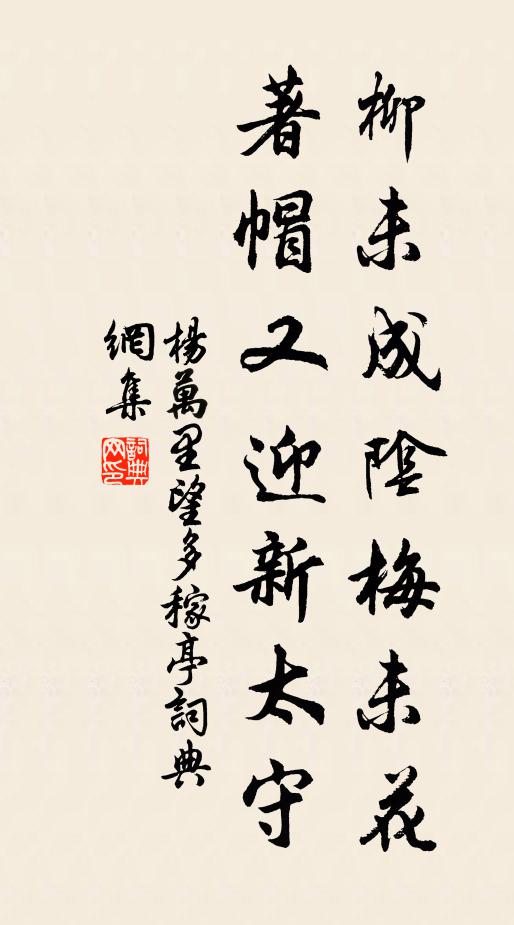 柳未成陰梅未花
著帽又迎新太守
楊萬里望多稼亭詞典
網集
詞典網印